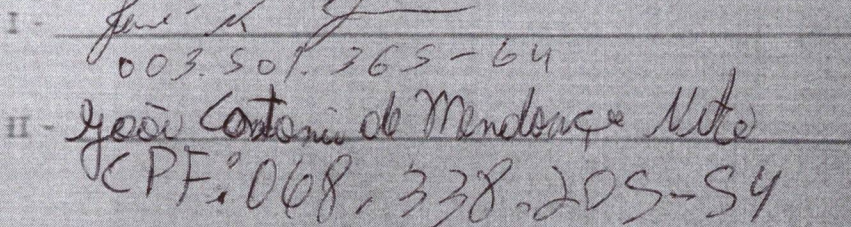 I - José
003.501.365-64
II - João Antonio de Mendonça Neto
CPF: 068.338.205-54